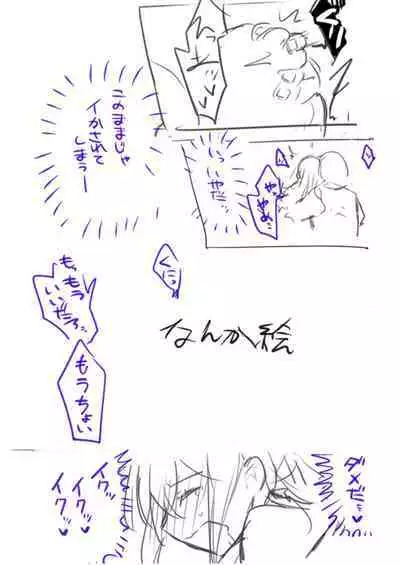 このままじゃ
イかされて
しまうー
いっ
いやだッ
やっ
やめ…
くにっ
もっもう
いいだろ…
もうちょい
なんか絵
ダメだ…♡
イク…♡
イク…♡
イク…♡